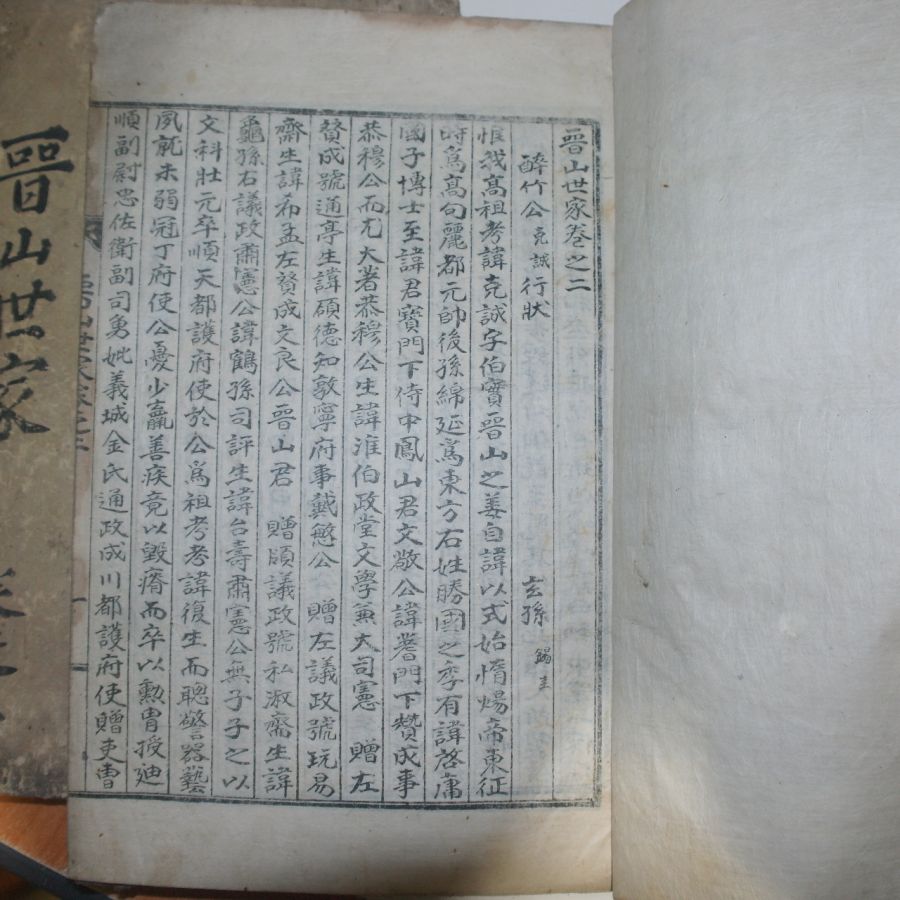 晉山世家卷之二
醉竹公克誠行狀
玄孫 錫圭
惟我高祖考諱克誠字伯實晉山之姜自諱以式始惰煬帝東征
時爲高句麗都元帥後孫綿延爲東方右姓勝國之季有諱啓庸
國子博士至諱君寶門下侍中鳳山君文敬公諱蓍門下贊成事
恭穆公而尤大著恭穆公生諱淮伯政堂文學兼大司憲 贈左
贊成號通亭生諱碩德知敦寧府事戴愍公 贈左議政號玩易
齋生諱希孟左贊成文良公晉山君 贈領議政號私淑齋生諱
龜孫右議政肅憲公諱鶴孫司評生諱台壽肅憲公無子子之以
文科壯元卒順天都護府使於公爲祖考考諱復生而聰警器藝
夙就未弱冠丁府使公憂少羸善疾竟以毁瘠而卒以勳胄授迪
順副尉忠佐衛副司勇妣義城金氏通政成川都護府使贈吏曹
晉山世家